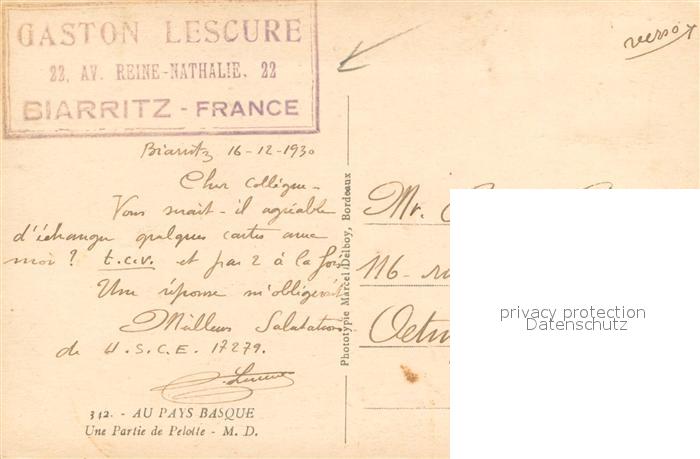 GASTON LESCURE
22, AV. REINE-NATHALIE. 22
BIARRITZ - FRANCE
verso
Biarritz 16-12-1930
Cher collègue -
Vous serait-il agréable
d'échanger quelques cartes avec
moi ? t.c.v. et par 2 à la fois
Une réponse m'obligerait
Meilleures Salutations
de U.S.C.E. 17279.
Lescure
312. - AU PAYS BASQUE
Une Partie de Pelotte - M. D.
Phototypie Marcel Delboy, Bordeaux
Mr.
116
privacy protection
Datenschutz